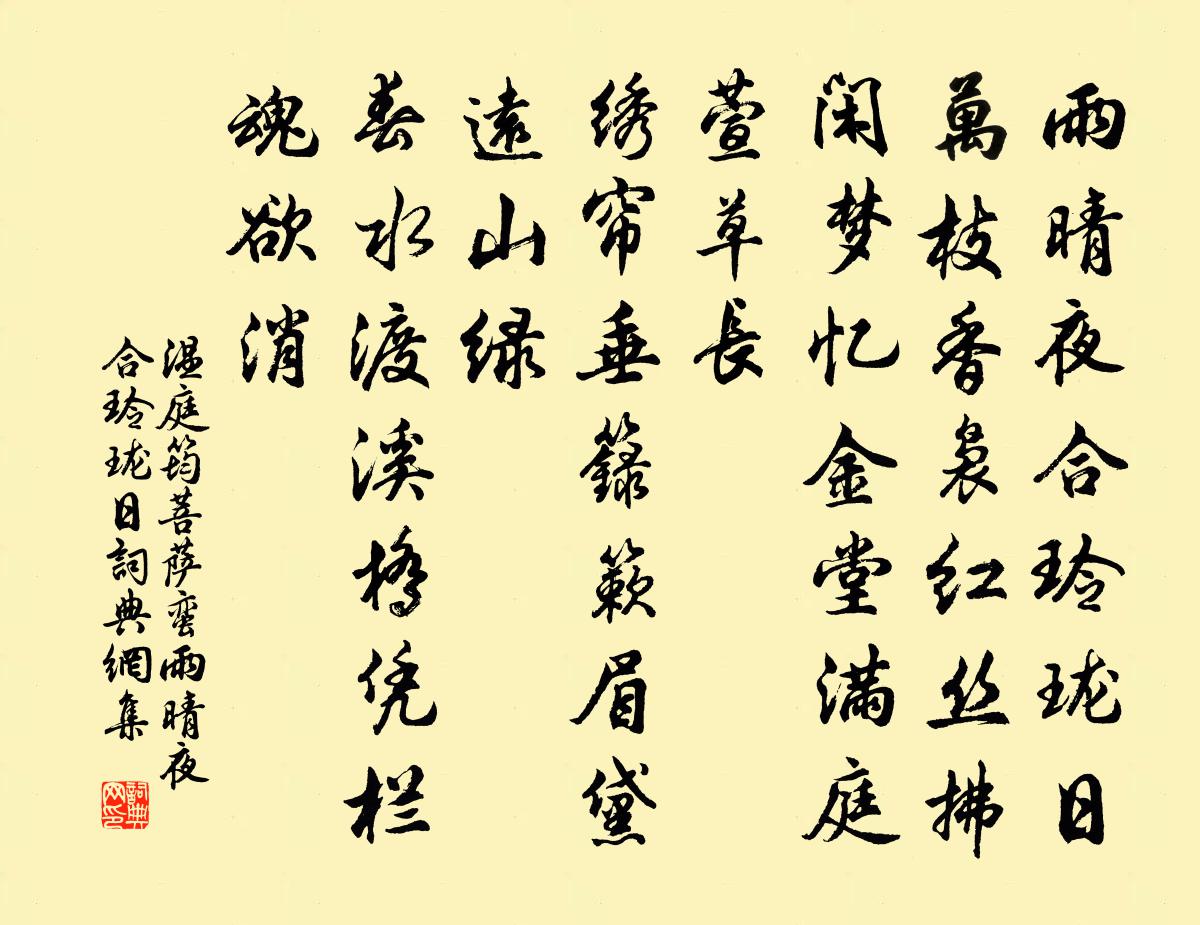 雨晴夜合玲珑日
萬枝香袅红丝拂
闲梦忆金堂满庭
萱草長
绣帘垂簶簌眉黛
遠山绿
春水渡溪橋凭栏
魂欲消
温庭筠菩萨蛮雨晴夜
合玲珑日詞典網集
詞典
网印